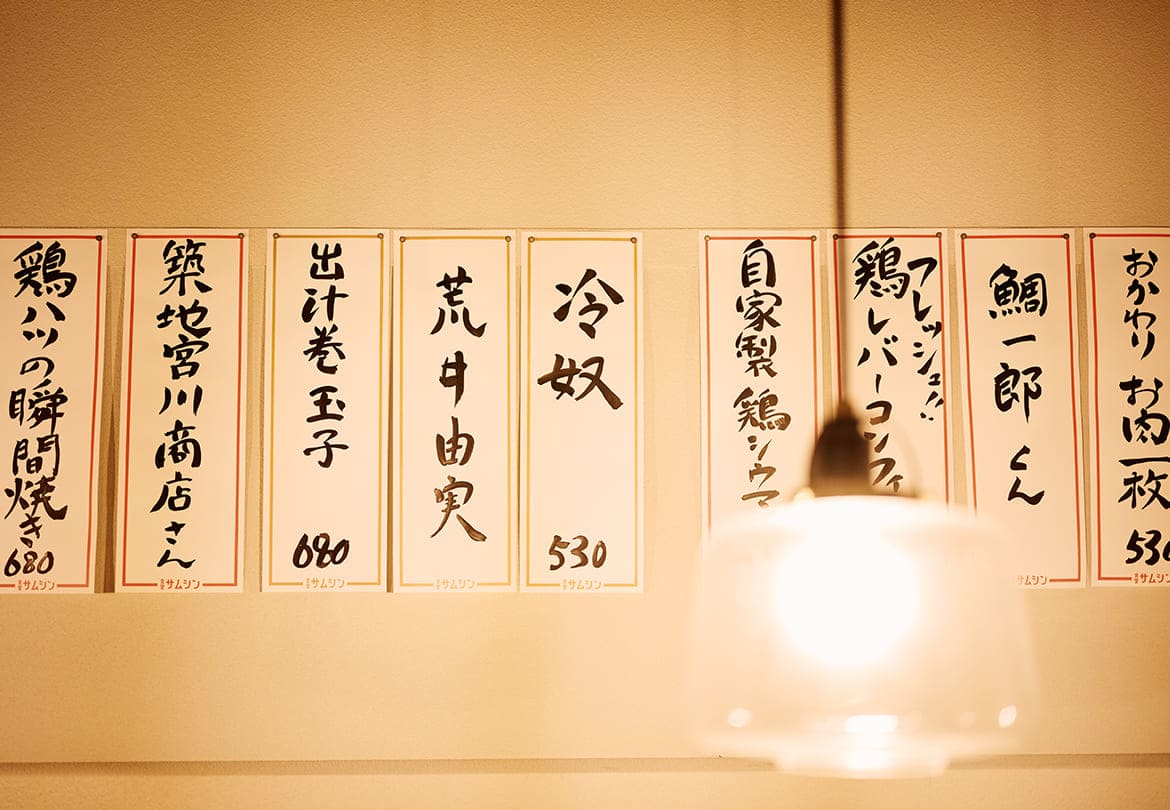 おかわり お肉一枚
530
サムシン
鯛一郎くん
サムシン
フレッシュ!!
鶏レバーコンフィ
自家製 鶏シウマ
冷奴
530
サムシン
荒井由実
サムシン
出汁巻玉子
680
サムシン
築地宮川商店さん
サムシン
鶏ハツの瞬間焼き
680
サムシン